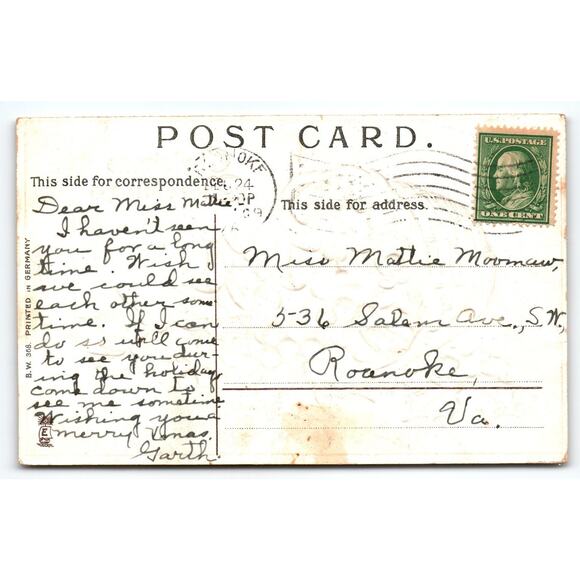 POST CARD.
ROANOKE
24
This side for correspondence.
This side for address.
U.S. POSTAGE
ONE CENT
Dear Miss Mattie:
I haven't seen
you for a long
time. Wish
we could see
each other some
time. If I can
do so will come
to see you dur-
ing the holidays
come down to
see me sometime
Wishing you a
merry Xmas,
Garth
Miss Mattie Moomaw,
536 Salem Ave., S.W.,
Roanoke,
Va.
B.W. 368. PRINTED IN GERMANY